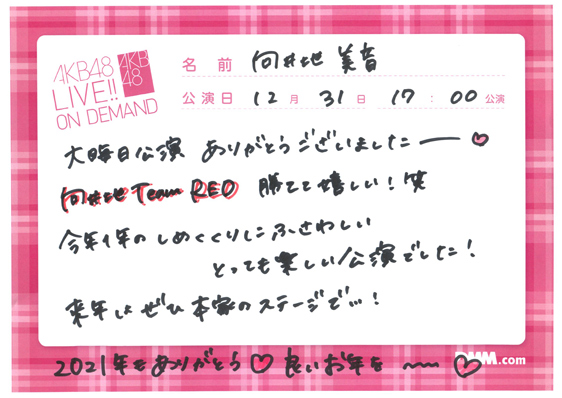 AKB48
LIVE!!
ON DEMAND
AKB
48
名前 向井地 美音
公演日 12月 31日 17:00公演
大晦日公演 ありがとうございましたー♡
向井地Team RED 勝てて嬉しい!笑
今年1年のしめくくりにふさわしい
とっても楽しい公演でした!
来年はぜひ本家のステージで…!
2021年もありがとう♡良いお年を〜〜♡
DMM.com